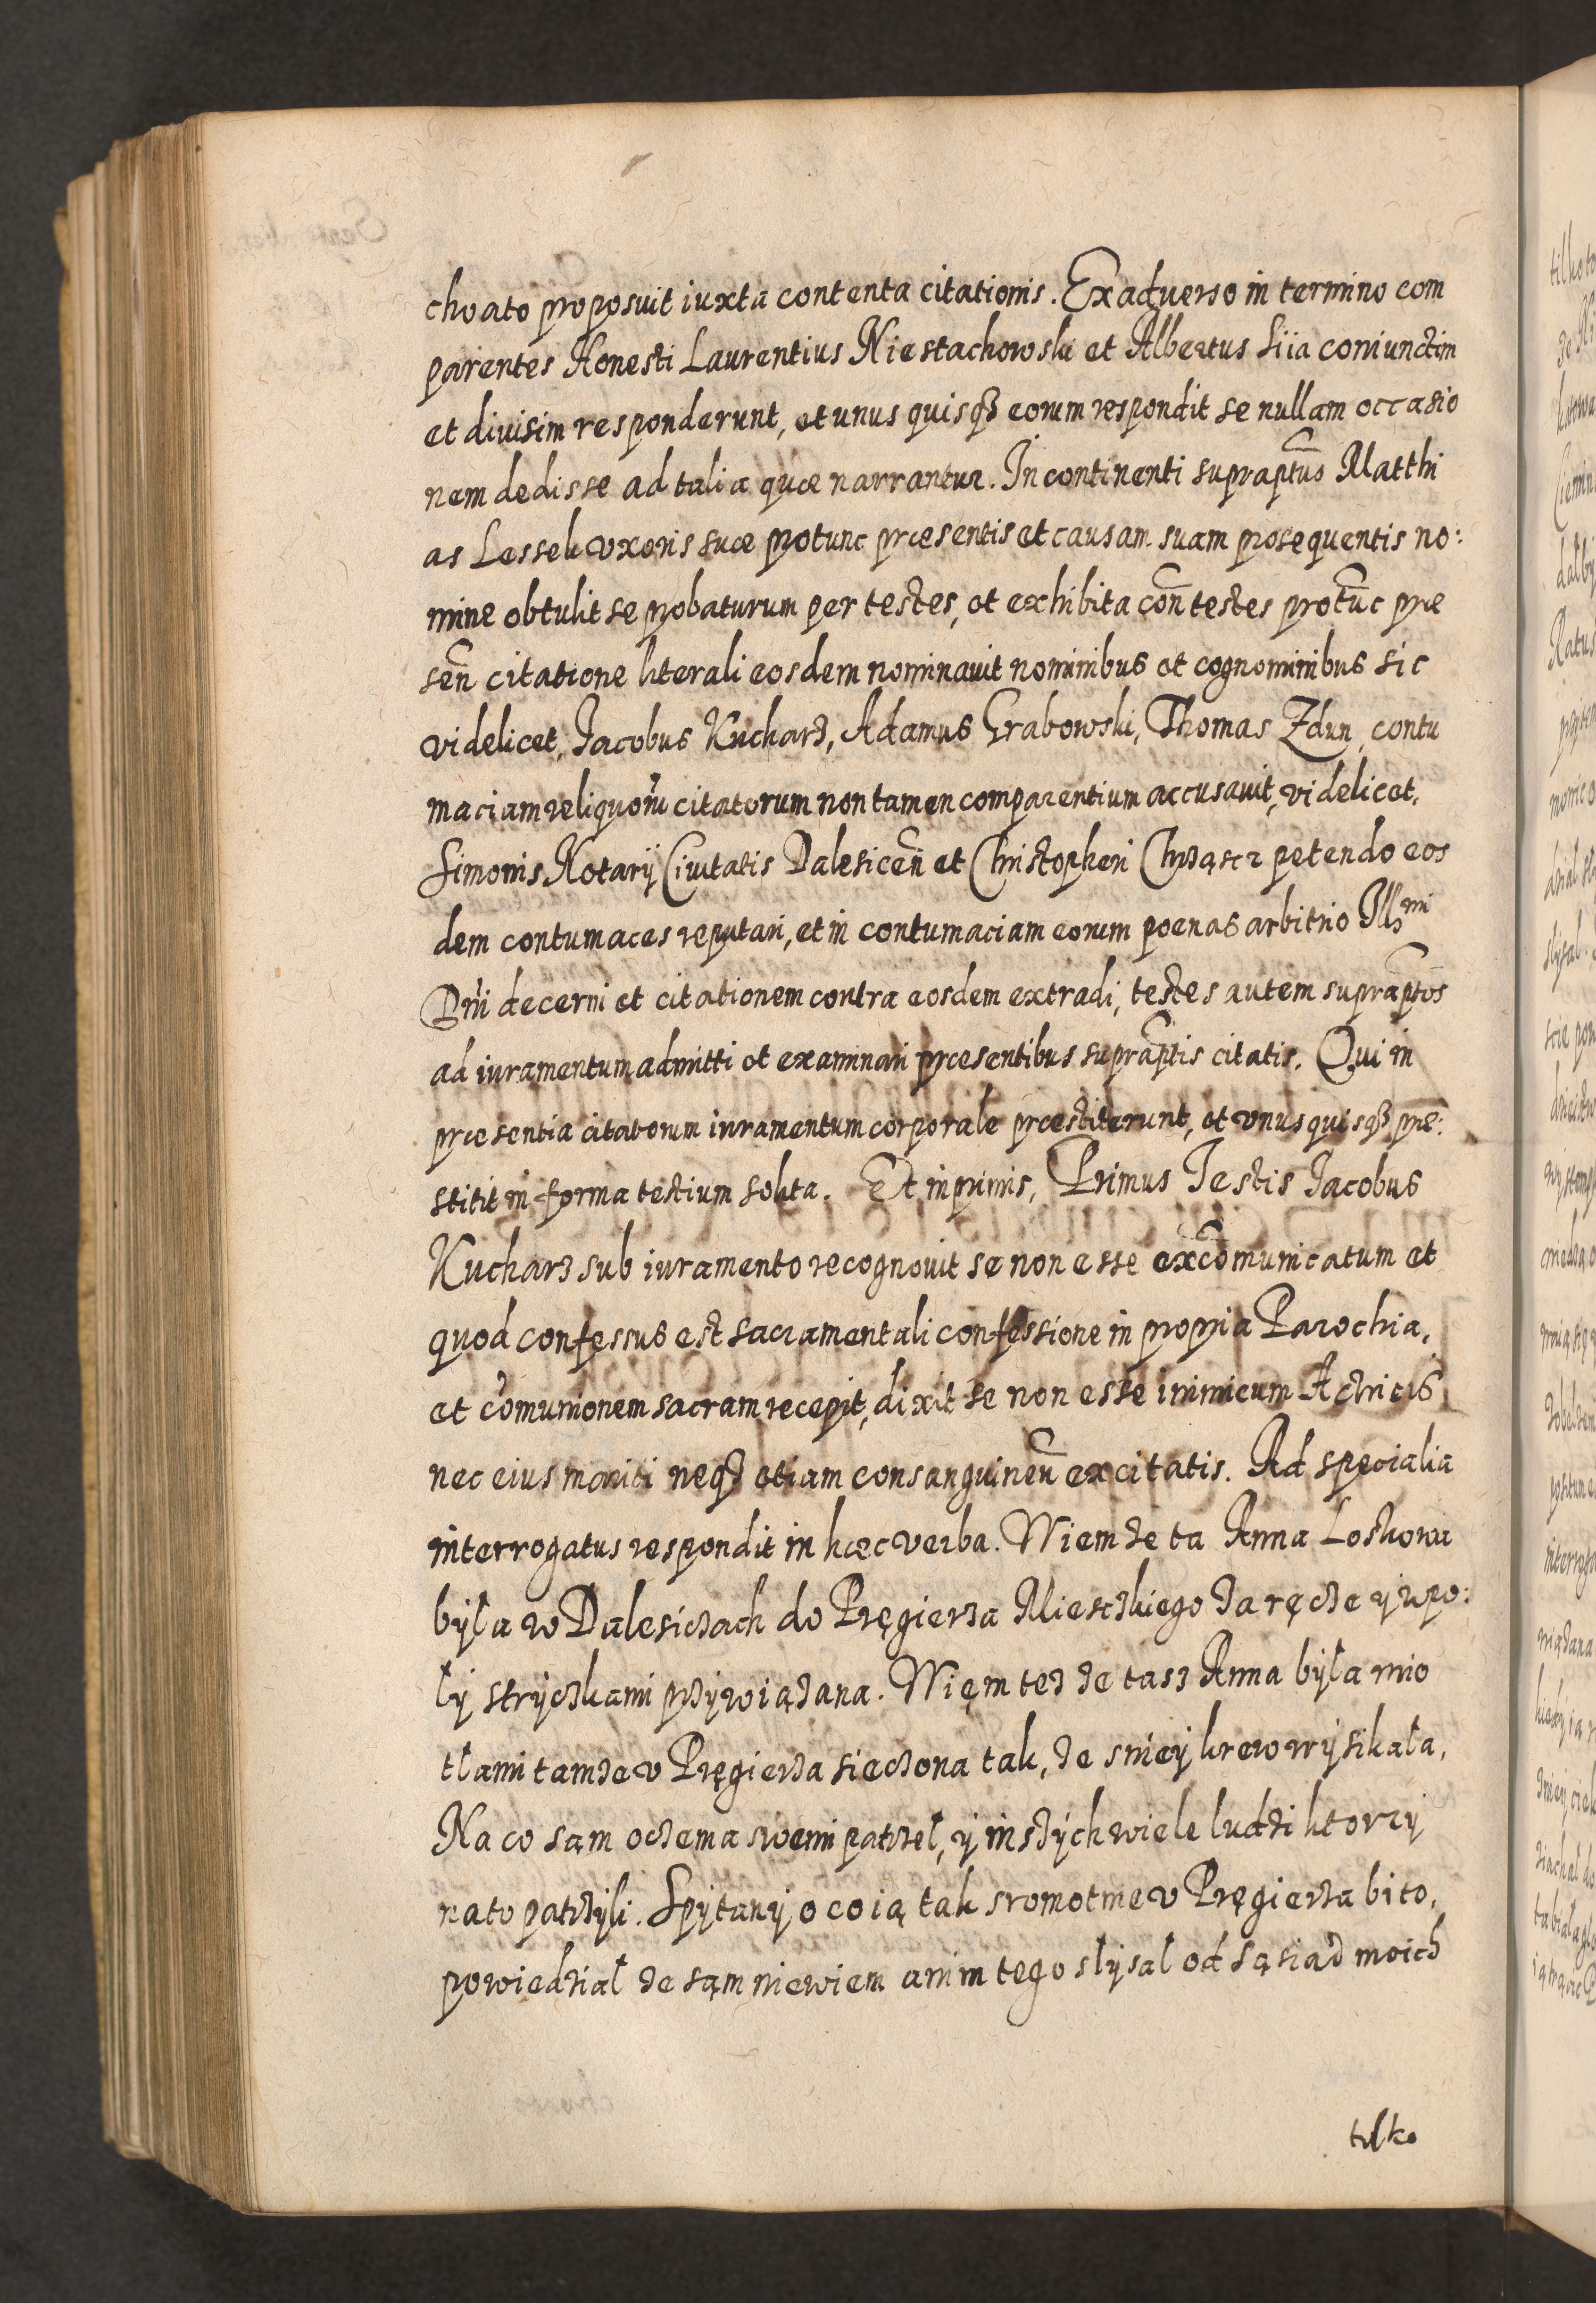 choato proposuit iuxta contenta citationis. Ex aduerso in termino com
parentes Honesti Laurentius Niestachowski et Albertus Siia coniunctim
et diuisim responderunt, et unus quisqȝ eorum respondit se nullam occasio
nem dedisse ad talia quæ narrantur. In continenti supraptũs Matthi
as Lessek vxoris suæ protunc præsentis et causam suam prosequentis no:
mine obtulit se probaturum per testes, et exhibita coñ testes protũc præ
señ citatione literali eosdem nominauit nominibus et cognominibus sic
videlicet, Jacobus Kucharz, Adamus Grabowski, Thomas Zdun, contu
maciam reliquorũ citatorum non tamen comparentium accusauit, videlicet.
Simonis Notarij Ciuitatis Daleszceñ et Christopheri Chrząscz petendo eos
dem contumaces reputari, et in contumaciam eorum poenas arbitrio Illmi
Dñi decerni et citationem contra eosdem extradi, testes autem supraptõs
ad iuramentum admitti et examinari præsentibus supraptis citatis. Qui in
præsentia citatorum iuramentum corporale præstiterunt, et vnus quisqȝ præ:
stitit in forma testium solita. Et inprimis, Primus Testis Jacobus
Kucharz sub iuramento recognouit se non esse excõmunicatum et
quod confessus est sacramentali confessione in propria Parochia,
et cõmunionem sacram recepit, dixit se non esse inimicum Actricis
nec eius mariti neqȝ etiam consanguineũ ex citatis. Ad specialia
interrogatus respondit in hæc verba. Wiem ze ta Anna Loszkowa
byla w Dalesiczach do Pręgierza Miesczkiego za ręcze y wpo:
ły stryczkami przywiązana. Więm tez ze tasz Anna była mio
tłami tamze v Pręgierza sieczona tak, ze sniey krew wysikała,
Na co sąm oczema swemi patrzeł, y inszych wiele ludzi ktorzy
nato patrzyli. Spytany o co ią tak sromotnie v Pręgierza bito,
powiedział ze sąm niewiem anim tego slysal od sąsiad moich
tylko